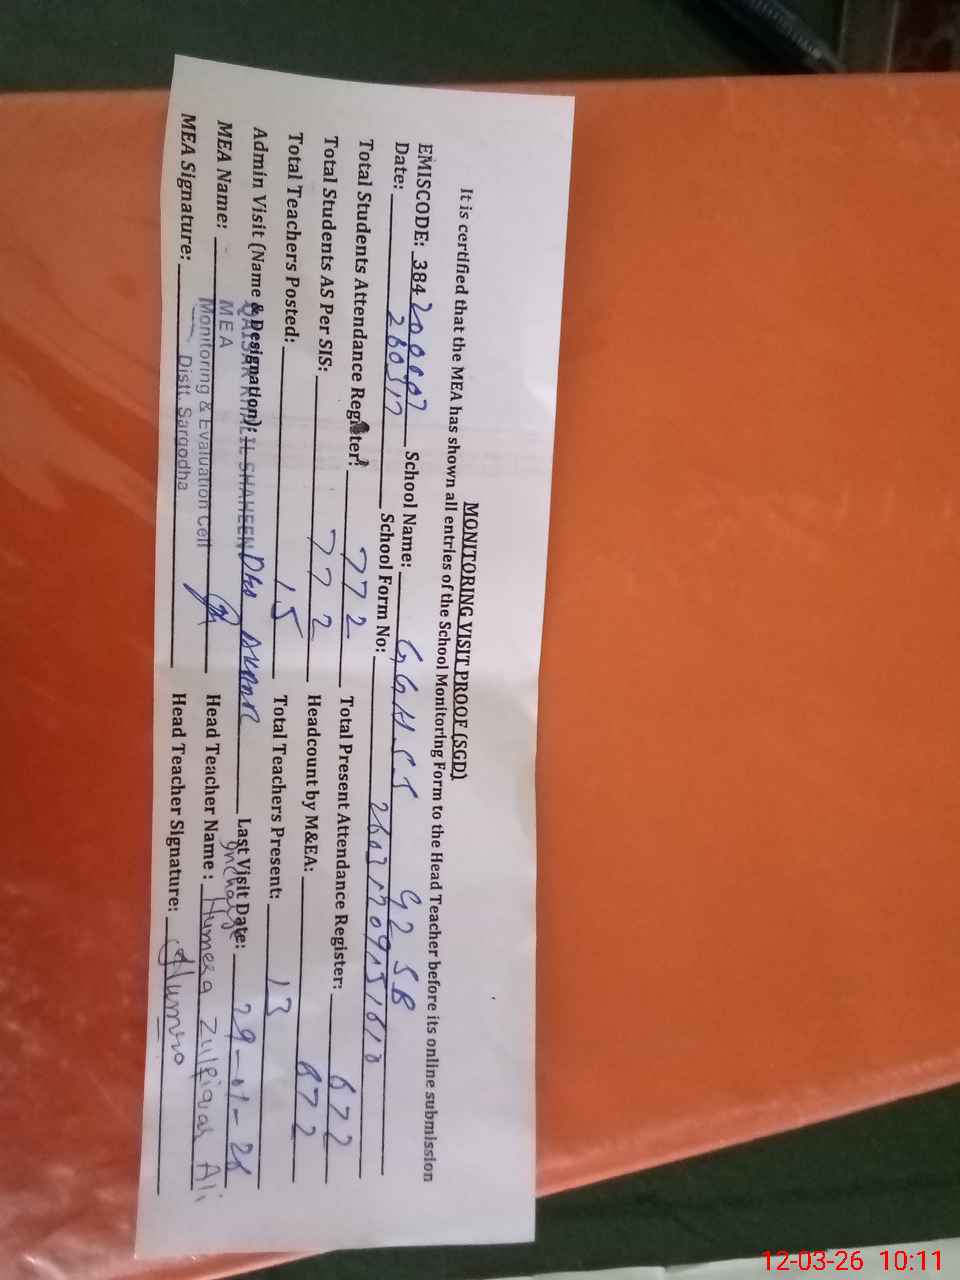 MONITORING VISIT PROOF (SGD)
It is certified that the MEA has shown all entries of the School Monitoring Form to the Head Teacher before its online submission
EMISCODE: 384 School Name: G G H S S 92 SB
Date: School Form No:
Total Students Attendance Register: 772 Total Present Attendance Register: 672
Total Students AS Per SIS: 772 Headcount by M&EA: 672
Total Teachers Posted: 15 Total Teachers Present: 13
Admin Visit (Name & Designation): Last Visit Date: 29-01-26
QAISAR KHALIL SHAHEEN
MEA
MEA Name: Incharge Head Teacher Name: Humera Zulfiqar Ali
Monitoring & Evaluation Cell
MEA Signature: Head Teacher Signature: Humera
Distt. Sargodha
12-03-26 10:11